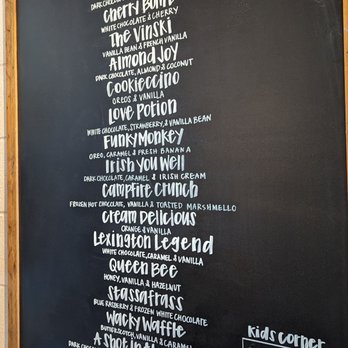 DARK CHOCOLATE
Cherry Bomb
WHITE CHOCOLATE & CHERRY
The Vinski
VANILLA BEAN & FRENCH VANILLA
Almond Joy
DARK CHOCOLATE, ALMOND & COCONUT
Cookieccino
OREOS & VANILLA
Love Potion
WHITE CHOCOLATE, STRAWBERRY, & VANILLA BEAN
Funky Monkey
OREO, CARAMEL & FRESH BANANA
Irish You Well
DARK CHOCOLATE, CARAMEL & IRISH CREAM
Campfire Crunch
FROZEN HOT CHOCOLATE, VANILLA & TOASTED MARSHMELLO
Cream Delicious
ORANGE & VANILLA
Lexington Legend
WHITE CHOCOLATE, CARAMEL & VANILLA
Queen Bee
HONEY, VANILLA & HAZELNUT
Stassafrass
BLUE RASBERRY & FROZEN WHITE CHOCOLATE
Wacky Waffle
BUTTERSCOTCH, VANILLA & CARAMEL
A Shot In the
DARK CHOC
Kids Corner